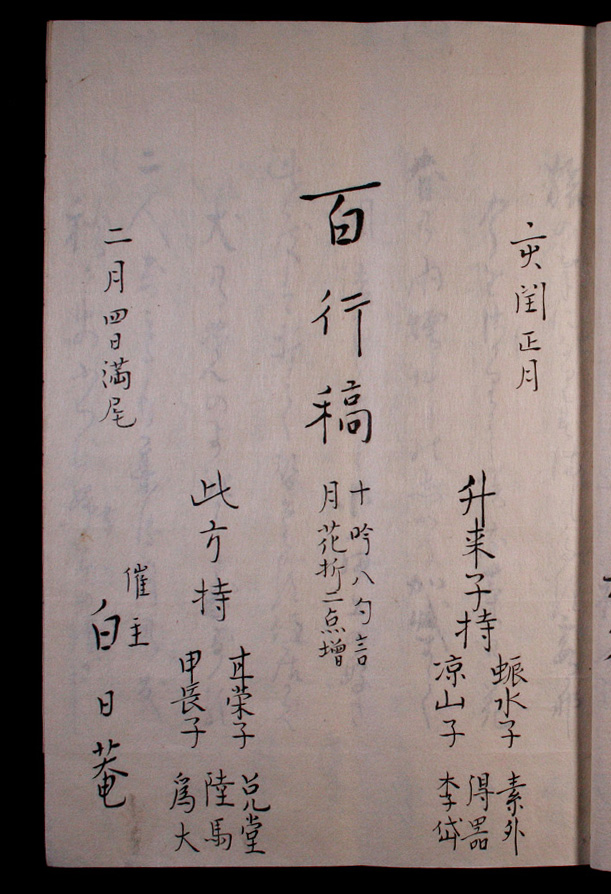 亥閏正月
升来子持
蜄水子
凉山子
素外
得器
李岱
百行稿
十吟八句言
月花折二点増
此方持
耳栄子
甲長子
兄堂
陸馬
為大
二月四日満尾
催主
白日菴